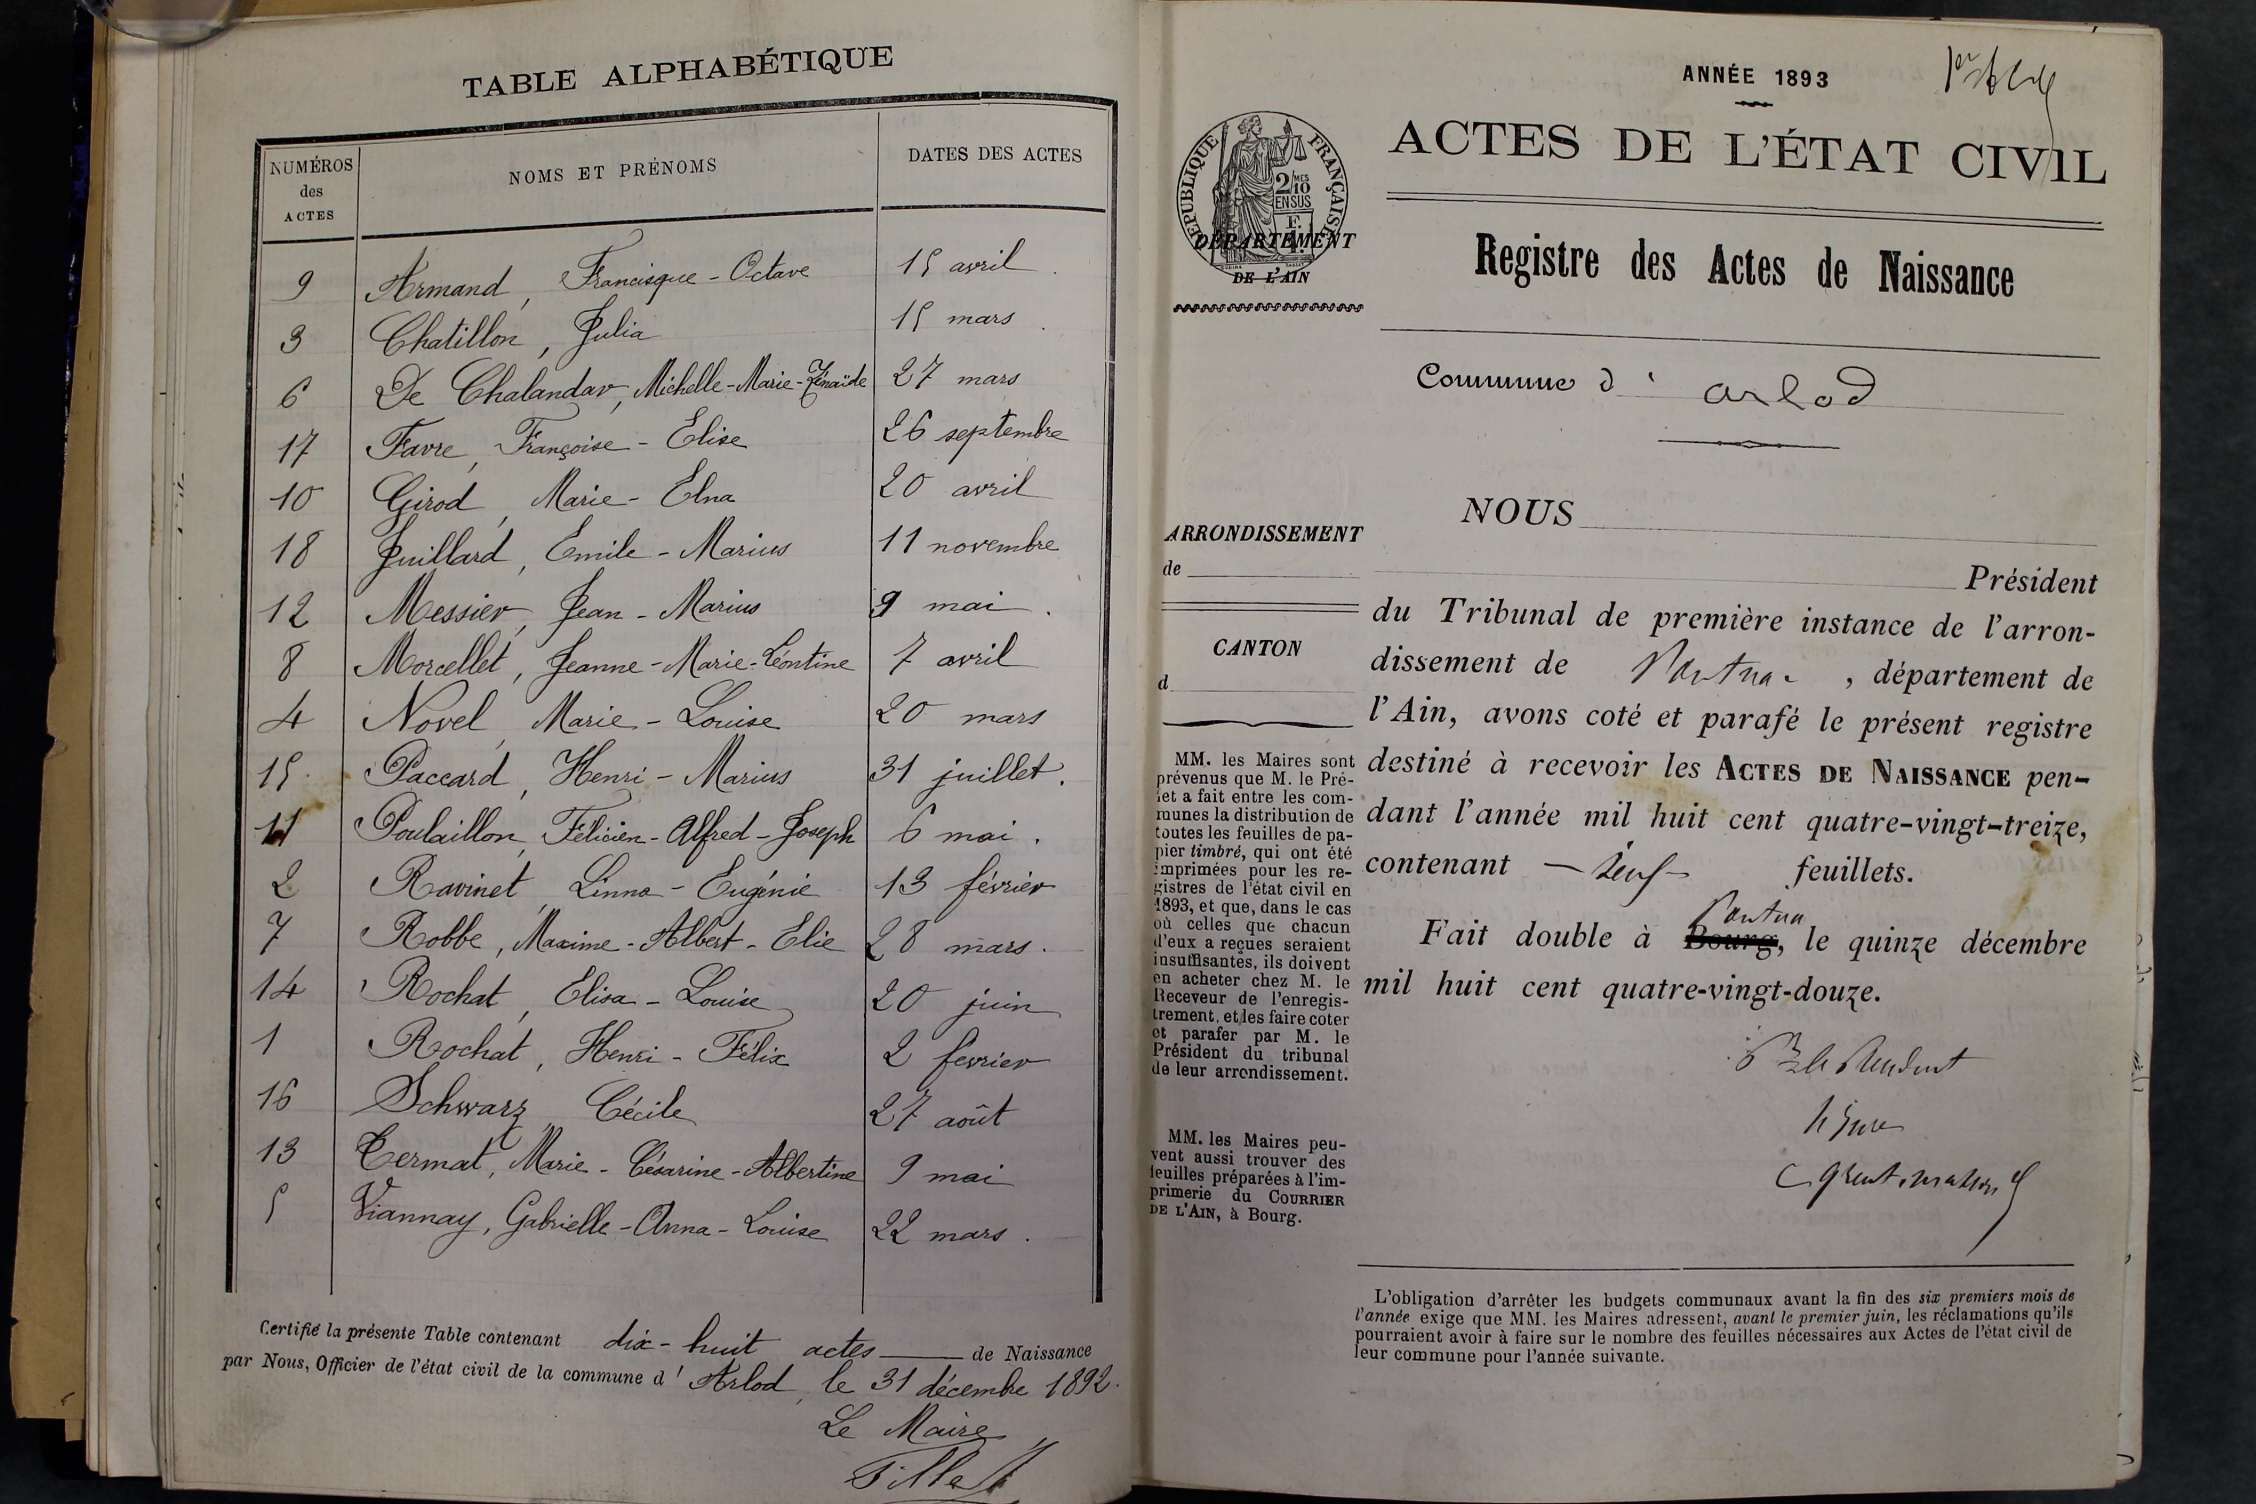 TABLE ALPHABÉTIQUE
NUMÉROS des ACTES NOMS ET PRÉNOMS DATES DES ACTES
9 Armand, Francisque - Octave 15 avril
3 Chatillon, Julia 15 mars
6 De Chalandar, Michelle-Marie-Zénaïde 27 mars
17 Favre, Françoise - Elise 26 septembre
10 Girod, Marie - Elna 20 avril
18 Juillard, Emile - Marius 11 novembre
12 Messier, Jean - Marius 9 mai
8 Morcellet, Jeanne-Marie-Léontine 7 avril
4 Novel, Marie - Louise 20 mars
15 Paccard, Henri - Marius 31 juillet.
11 Poulaillon, Félicien-Alfred-Joseph 6 mai.
2 Ravinet, Linna - Eugénie 13 février
7 Robbe, Maxime - Albert - Elie 28 mars.
14 Rochat, Elisa - Louise 20 juin
1 Rochat, Henri - Félix 2 fevrier
16 Schwarz, Cécile 27 août
13 Termat, Marie - Césarine - Albertine 9 mai
5 Viannay, Gabrielle - Anna - Louise 22 mars.
Certifié la présente Table contenant dix-huit actes de Naissance
par Nous, Officier de l'état civil de la commune d' Arlod, le 31 décembre 1892.
Le Maire
Tillet
ANNÉE 1893
ACTES DE L'ÉTAT CIVIL
RÉPUBLIQUE FRANÇAISE
2/10 MES
EN SUS
DÉPARTEMENT
DE L'AIN
Registre des Actes de Naissance
Commune d' Arlod
ARRONDISSEMENT
de
CANTON
d
MM. les Maires sont
prévenus que M. le Pré-
fet a fait entre les com-
munes la distribution de
toutes les feuilles de pa-
pier timbré, qui ont été
imprimées pour les re-
gistres de l'état civil en
1893, et que, dans le cas
où celles que chacun
d'eux a reçues seraient
insuffisantes, ils doivent
en acheter chez M. le
Receveur de l'enregis-
trement, et les faire coter
et parafer par M. le
Président du tribunal
de leur arrondissement.
MM. les Maires peu-
vent aussi trouver des
feuilles préparées à l'im-
primerie du COURRIER
DE L'AIN, à Bourg.
NOUS
Président
du Tribunal de première instance de l'arron-
dissement de Nantua, département de
l'Ain, avons coté et parafé le présent registre
destiné à recevoir les ACTES DE NAISSANCE pen-
dant l'année mil huit cent quatre-vingt-treize,
contenant feuillets.
Nantua
Fait double à Bourg, le quinze décembre
mil huit cent quatre-vingt-douze.
Pr le Président
le Juge
L'obligation d'arrêter les budgets communaux avant la fin des six premiers mois de
l'année exige que MM. les Maires adressent, avant le premier juin, les réclamations qu'ils
pourraient avoir à faire sur le nombre des feuilles nécessaires aux Actes de l'état civil de
leur commune pour l'année suivante.